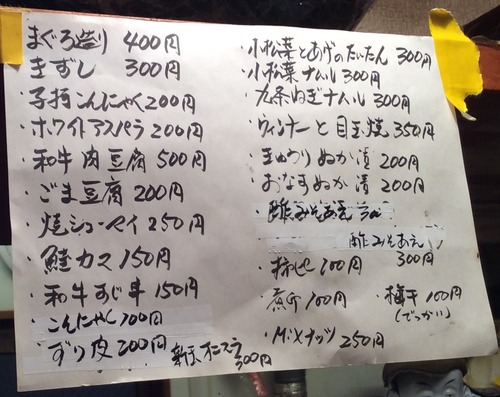 まぐろ造り 400円
きずし 300円
・子持こんにゃく200円
・ホワイトアスパラ200円
・和牛肉豆腐500円
・ごま豆腐200円
・焼シューマイ250円
・鮭カマ150円
・和牛あじ串150円
・こんにゃく100円
・ずり皮200円
新玉オニスラ300円
・小松菜とあげのたいたん300円
・小松菜ナムル300円
・九条ねぎナムル300円
・ウィンナーと目玉焼350円
・きゅうりぬか漬200円
・おなすぬか漬200円
・酢みそあえ
酢みそあえ
300円
・柿ピー100円
・煮干100円 ・梅干100円
(でっかい)
・Mixナッツ250円